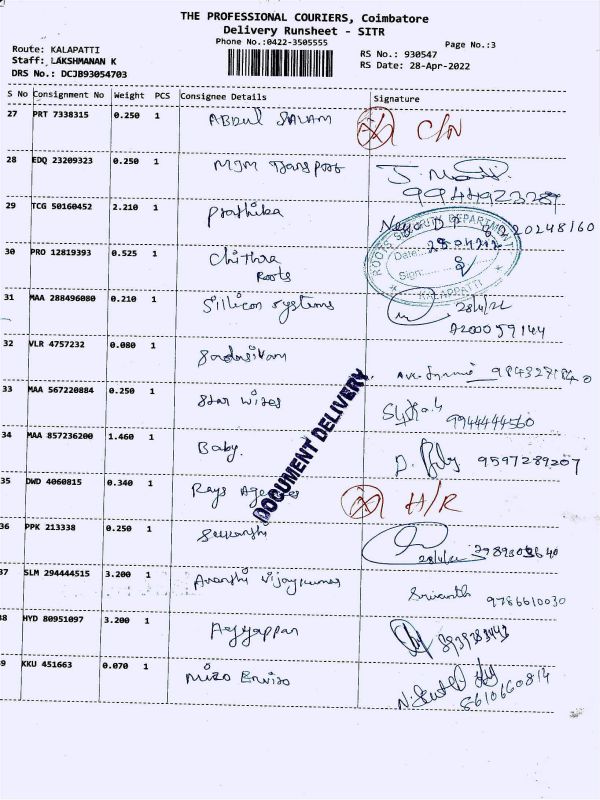 THE PROFESSIONAL COURIERS, Coimbatore
Delivery Runsheet - SITR
Phone No.:0422-3505555
Page No.:3
Route: KALAPATTI
Staff: LAKSHMANAN K
DRS No.: DCJB93054703
RS No.: 930547
RS Date: 28-Apr-2022
S No Consignment No Weight PCS Consignee Details Signature
27 PRT 7338315 0.250 1 ABDUL SALAM C/N
28 EDQ 23209323 0.250 1 MJM Transport
29 TCG 50160452 2.210 1 Prathika
ROOTS SECURITY DEPARTMENT
Date: 28/04/22
Sign:
KALAPPATTI
30 PRO 12819393 0.525 1 Chithra
Roots
31 MAA 288496080 0.210 1 Sillicon Systems 28/4/22
A200059144
32 VLR 4757232 0.080 1 Sadasivam
33 MAA 567220884 0.250 1 Star Wires 9944444560
34 MAA 857236200 1.460 1 Baby. 9597289207
DOCUMENT DELIVERY
35 DWD 4060815 0.340 1 Rays Agencies H/R
36 PPK 213338 0.250 1 28/4/22
37 SLM 294444515 3.200 1 Ananthi Vijaykumar Srivanth 9786610030
38 HYD 80951097 3.200 1 Aayyappan
39 KKU 451663 0.070 1 Miro Enviro
8610660814